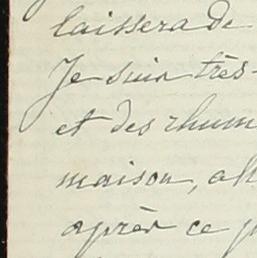 laissera de
Je suis très-
et des rhum
maison, 
après ce